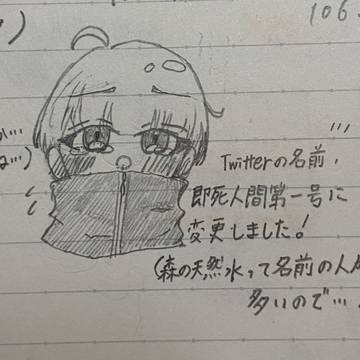 106.
Twitterの名前,
即死人間第一号に
変更しました!
(森の天然水って名前の人が
多いので…